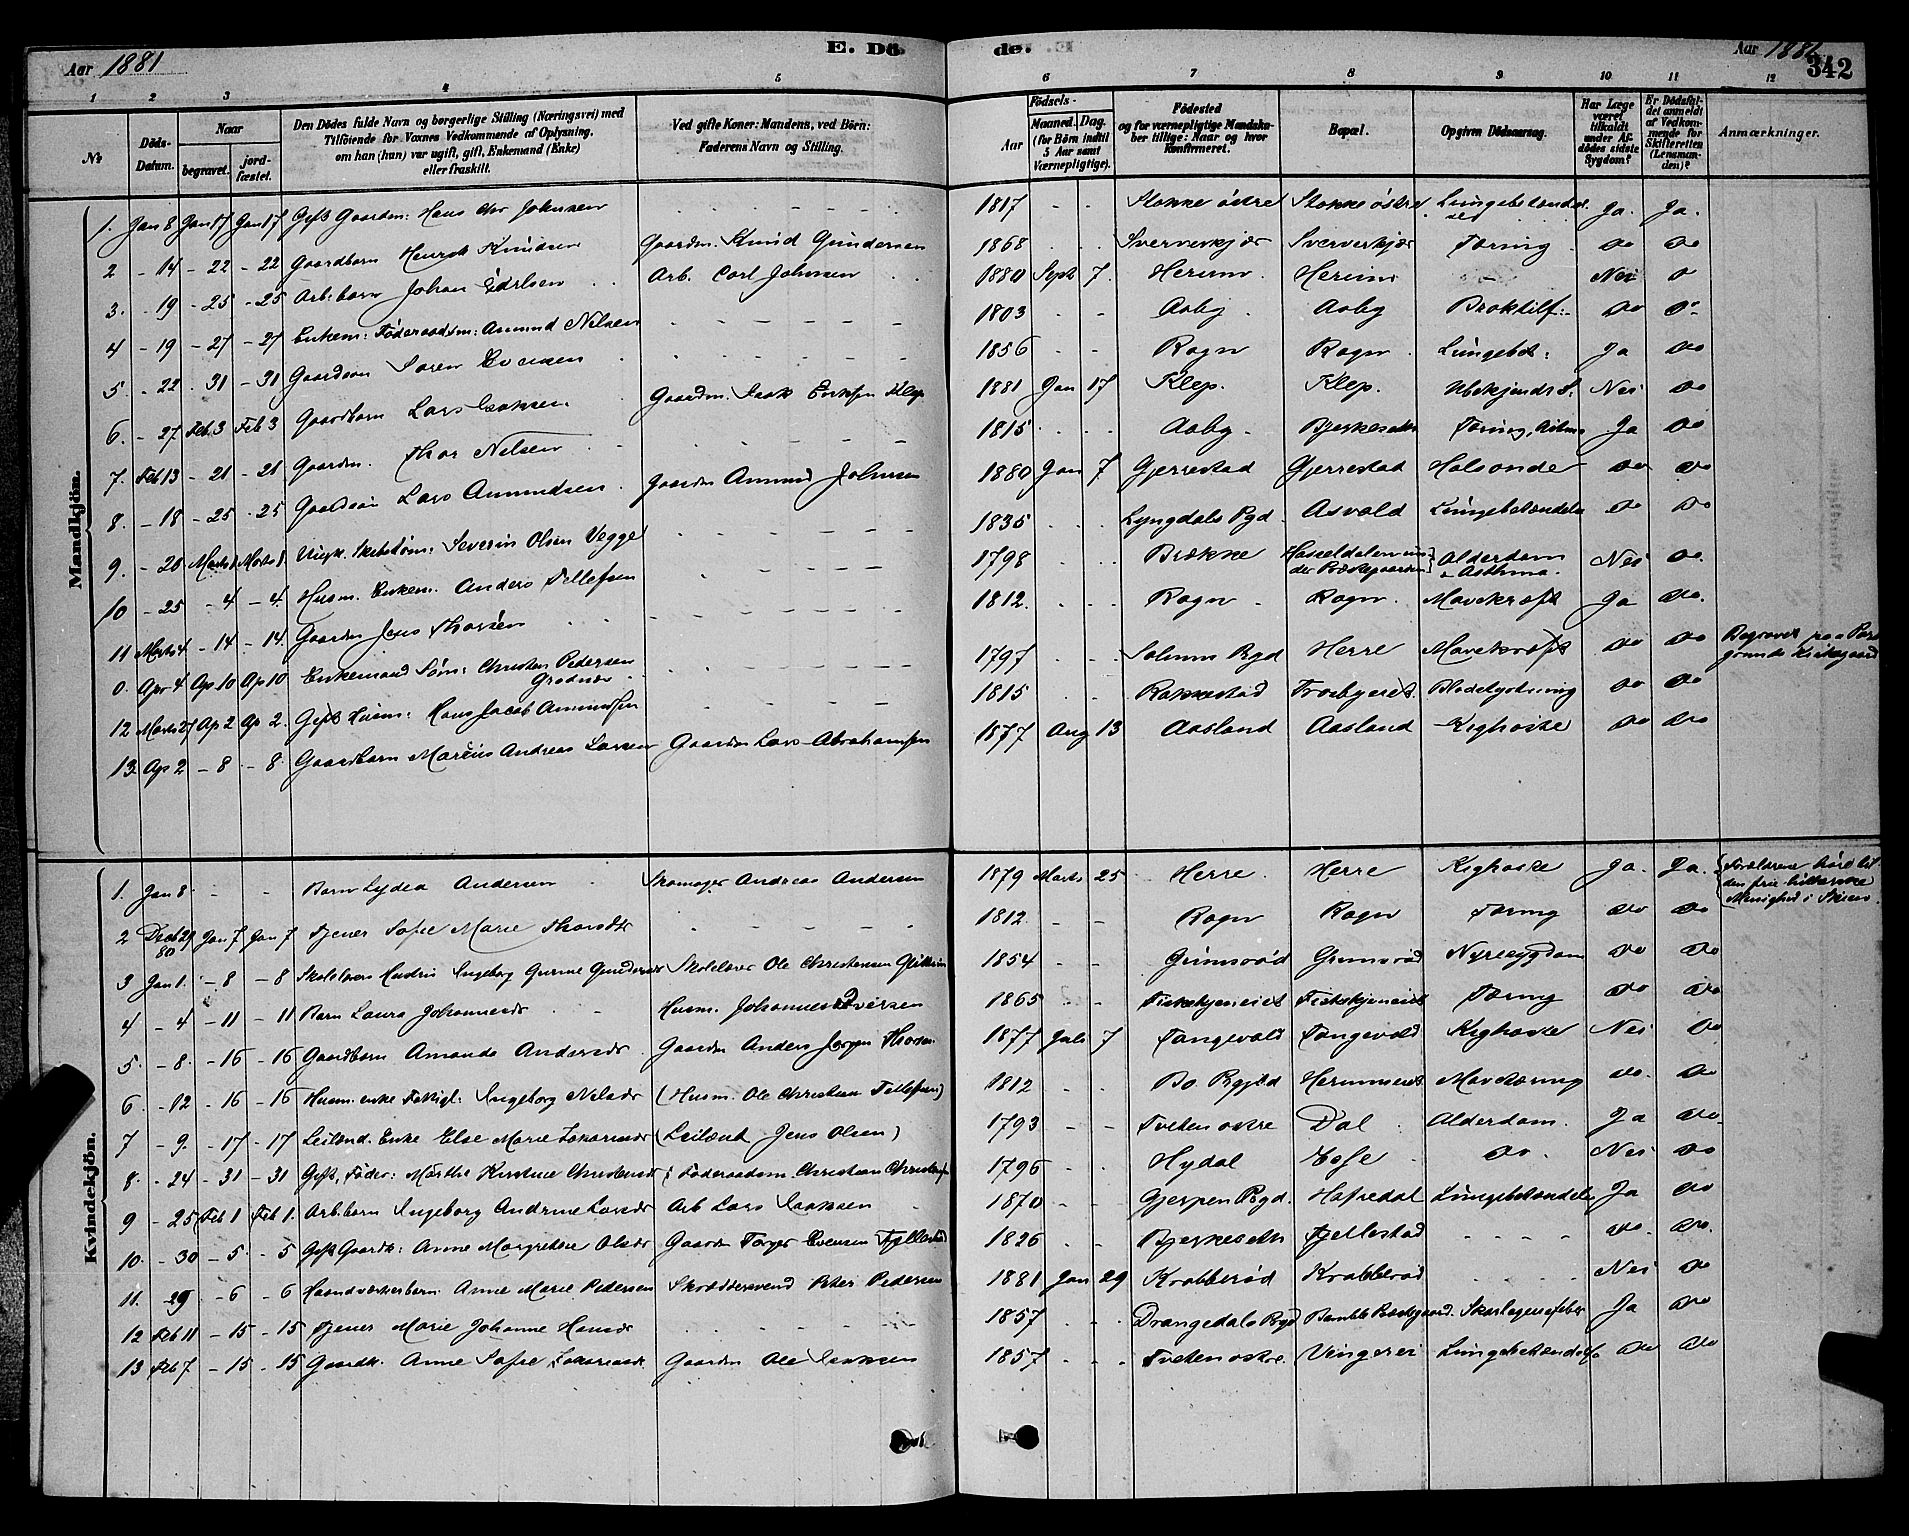 Aar 1881 E. Dö- de. Aar 1881 342
1 2 3 4 5 6 7 8 9 10 11 12
No Döds-Datum. Naar begravet. jord-fæstet. Den Dödes fulde Navn og borgerlige Stilling (Næringsvei) med Tilföiende for Voxnes Vedkommende af Oplysning, om han (hun) var ugift, gift, Enkemand (Enke) eller fraskilt. Ved gifte Koner: Mandens, ved Börn: Faderens Navn og Stilling. Födsels- Aar Maaned. Dag. (for Börn indtil 5 Aar samt Værnepligtige). Födested og for værnepligtige Mandskaber tillige: Naar og hvor konfirmeret. Bopæl. Opgiven Dödsaarsag. Har Læge været tilkaldt under Afdödes sidste Sygdom? Er Dödsfaldet anmeldt af Vedkommende for Skifteretten (Lensmanden)? Anmærkninger.
Mandkjön.
1. Jan 8 Jan 17 Jan 17 Gift Gaardm: Hans Chr Johnsen - - - 1817 - - Stokke östre Stokke östre Lungebetændelse Ja. Ja.
2 - 14 - 22 - 22 Gaardbarn Henrik Knudsen Gaardm. Knud Gundersen 1868 - - Sververkjær Sververkjær Tæring do do
3. - 19 - 25 - 25 Arb: barn Johan Carlsen Arb. Carl Johnsen 1880 Sept 7. Herum Herum - Nei do
4 - 19 - 27 - 27 Enkem: Föderaadsm: Amund Nilsen - - - 1803 - - Aaby Aaby Broktilf: do do
5 - 22 - 31 - 31 Gaardsön Sören Evensen - - - 1856 - - Rogn Rogn Lungebet: Ja do
6. - 27 Feb. 3 Feb 3 Gaardbarn Lars Isaksen Gaardm. Isak Eriksen Klep 1881 Jan 17 Klep. Klep. Ubekjendt S. Nei do
7. Feb 13 - 21 - 21 Gaardm. Thor Nilsen - - - 1815 - - Aaby Bjerkeseth Tæring, Astma Ja do
8. - 18 - 25 - 25 Gaardsön Lars Amundsen Gaardm Amund Johnsen 1880 Jan 7 Gjerrestad Gjerrestad Halsonde do do
9. - 20 Marts 1 Marts 1 Ugift Skibstöm: Severin Olsen Vegge - - - 1835 - - Lyngdals Pgd. Asvald Lungebetændelse do do
10 - 25 - 4 - 4. Husm. Enkem. Anders Tellefsen - - - 1798 - - Brække Hasseldalen under Præstegaarden Alderdom - Asthma. Nei do.
11 Marts 4 - 14 - 14. Gaardm Jens Thorsen - - - 1812. - - Rogn Rogn. Mavekræft Ja do.
0. Apr 4 Ap 10 Ap 10 Enkemand Töm: Christen Pedersen - - - 1797 - - Solum Pgd Herre Mavekræft do do Begravet paa Porsgrunds Kirkegaard
12 Marts 27 Ap 2 Ap 2. Gift Husm: Hans Jacob Amundsen - - - 1815 - - Rakkestad Trosbyeret Blodstyrtning do do
13. Ap 2 - 8 - 8. Gaardbarn Marius Andreas Larsen Gaardm Lars Abrahamsen 1877 Aug 13 Aasland Aasland Kighoste do do
Kvindekjön.
1. Jan 8 - - Barn Lydea Andersen Skomager Andreas Andersen 1879 Marts 25 Herre. Herre Kighoste Ja. Ja. Forældrene höre til den frie lutherske Menighed i Skien.
2 Decb 29 80 Jan 7 Jan 7 Tjener Sofie Marie Thorsdtr - - - 1812. - - Rogn Rogn Tæring do do
3 Jan 1. - 8 - 8 Skolelærer Hustru Ingeborg Gurine Gundersdr Skolelærer Ole Christensen 1854 - - Grimsröd Grimsröd Nyresygdom do do
4 - 4 - 11 - 11 Barn Laura Johannesdr Husm. Johannes Iversen 1865 - - Fiskekjeneiet Fiskekjeneiet Tæring do do
5. - 8. - 16 - 16 Gaardbarn Amanda Andersdr. Gaardm Anders Jørgen Thorsen 1877 Juli 7 Tangevald Tangevald Kighoste Nei do
6. - 12 - 16 - 16 Husm. enke Fattigl: Ingeborg Nilsdr (Husm. Ole Christian Tellefsen) 1812 - - Bo Pgjeld Herumseiet Mavetæring do. do
7 - 9. - 17 - 17 Leilænd. Enke Else Marie Zakariasdr (Leilænd Jens Olsen) 1793 - - Tveten östre Dal Alderdom. Ja do
8. - 24 - 31 - 31 Gift, Föder: Marthe Kirstine Christensdr (Föderaadsm. Christian Christensen 1796 - - Hydal do. Nei do
9 - 25 Feb 1 Feb 1. Arb: barn Ingeborg Andrine Larsdr Arb Lars Isaksen 1870 - - Gjerpen Pgd. Hafredal Lungebetændelse Ja do
10. - 30 - 5. - 5 Gift Gaardk: Anne Margrethe Olsdr Gaardm Torger Evensen Fjellestad 1826 - - Bjerkeseth Fjellestad - - - do. do.
11. 29 - 6 - 6 Haandværkerbarn. Anne Marie Pedersen Skræddersvend Peter Pedersen 1881 Jan 29 Krabberöd Krabberöd - - - Nei do
12 Feb 11 - 15 - 15 Tjener Marie Johanne Hansdr - - - 1857 - - Drangedals Pgd Bamble Præstegaard. Skarlagensfeber Ja do
13 Feb 7 - 15 - 15 Gaardk. Anne Sofie Zakariasdr. Gaardm Ole Isaksen 1857 - - Tveten östre. Vingerei Lungebetændelse do do